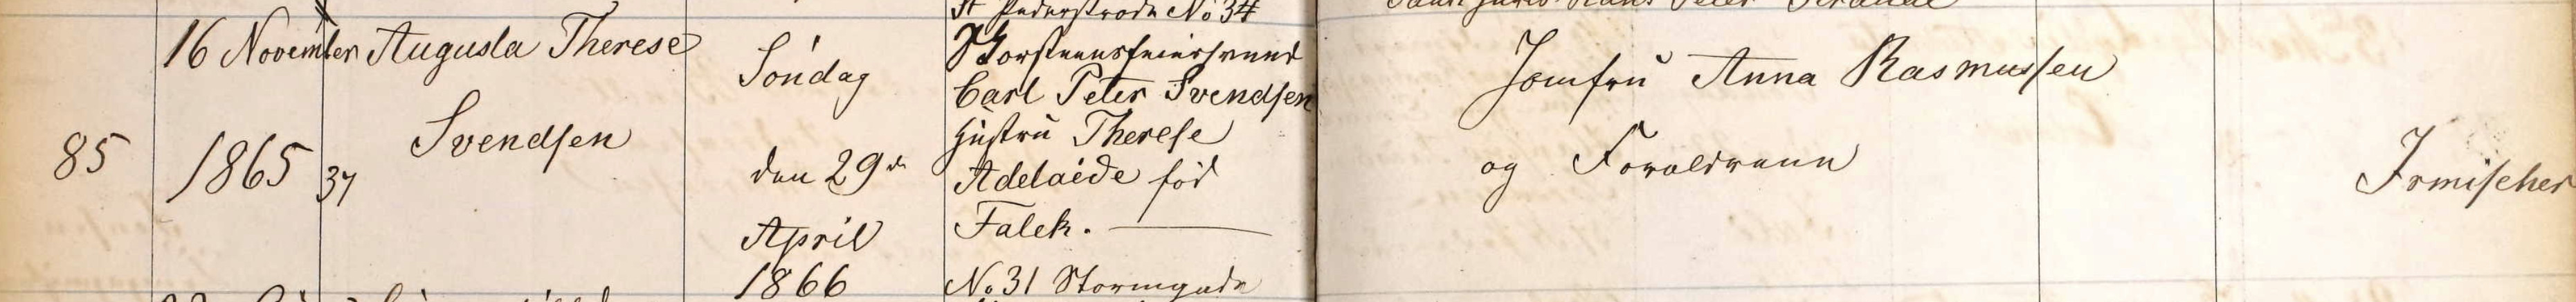 St Pederstrade No 34
16 November Augusta Therese
Söndag
Skorsteensfeiersvend
Jomfru Anna Rasmussen
Carl Peter Svendsen
Svendsen
Hustru Therese
85
1865
37
den 29de
Adelaide född
og Forældrene
Irmischer
April
Falck.
1866
No 31 Stormgade